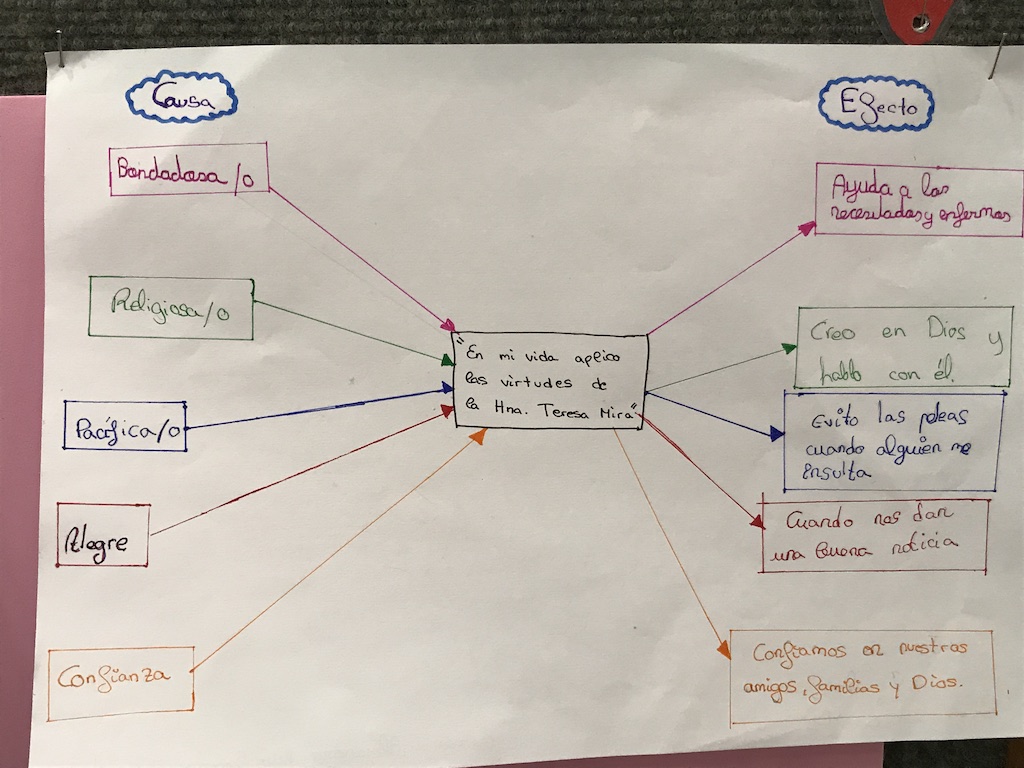 Causa
Efecto
Bondadosa/o
Religiosa/o
Pacífica/o
Alegre
Confianza
"En mi vida aplico
las virtudes de
la Hna. Teresa Mira"
Ayuda a las
necesitadas y enfermas
Creo en Dios y
hablo con él.
Evito las peleas
cuando alguien me
insulta
Cuando nos dan
una buena noticia
Confiamos en nuestras
amigos, familias y Dios.